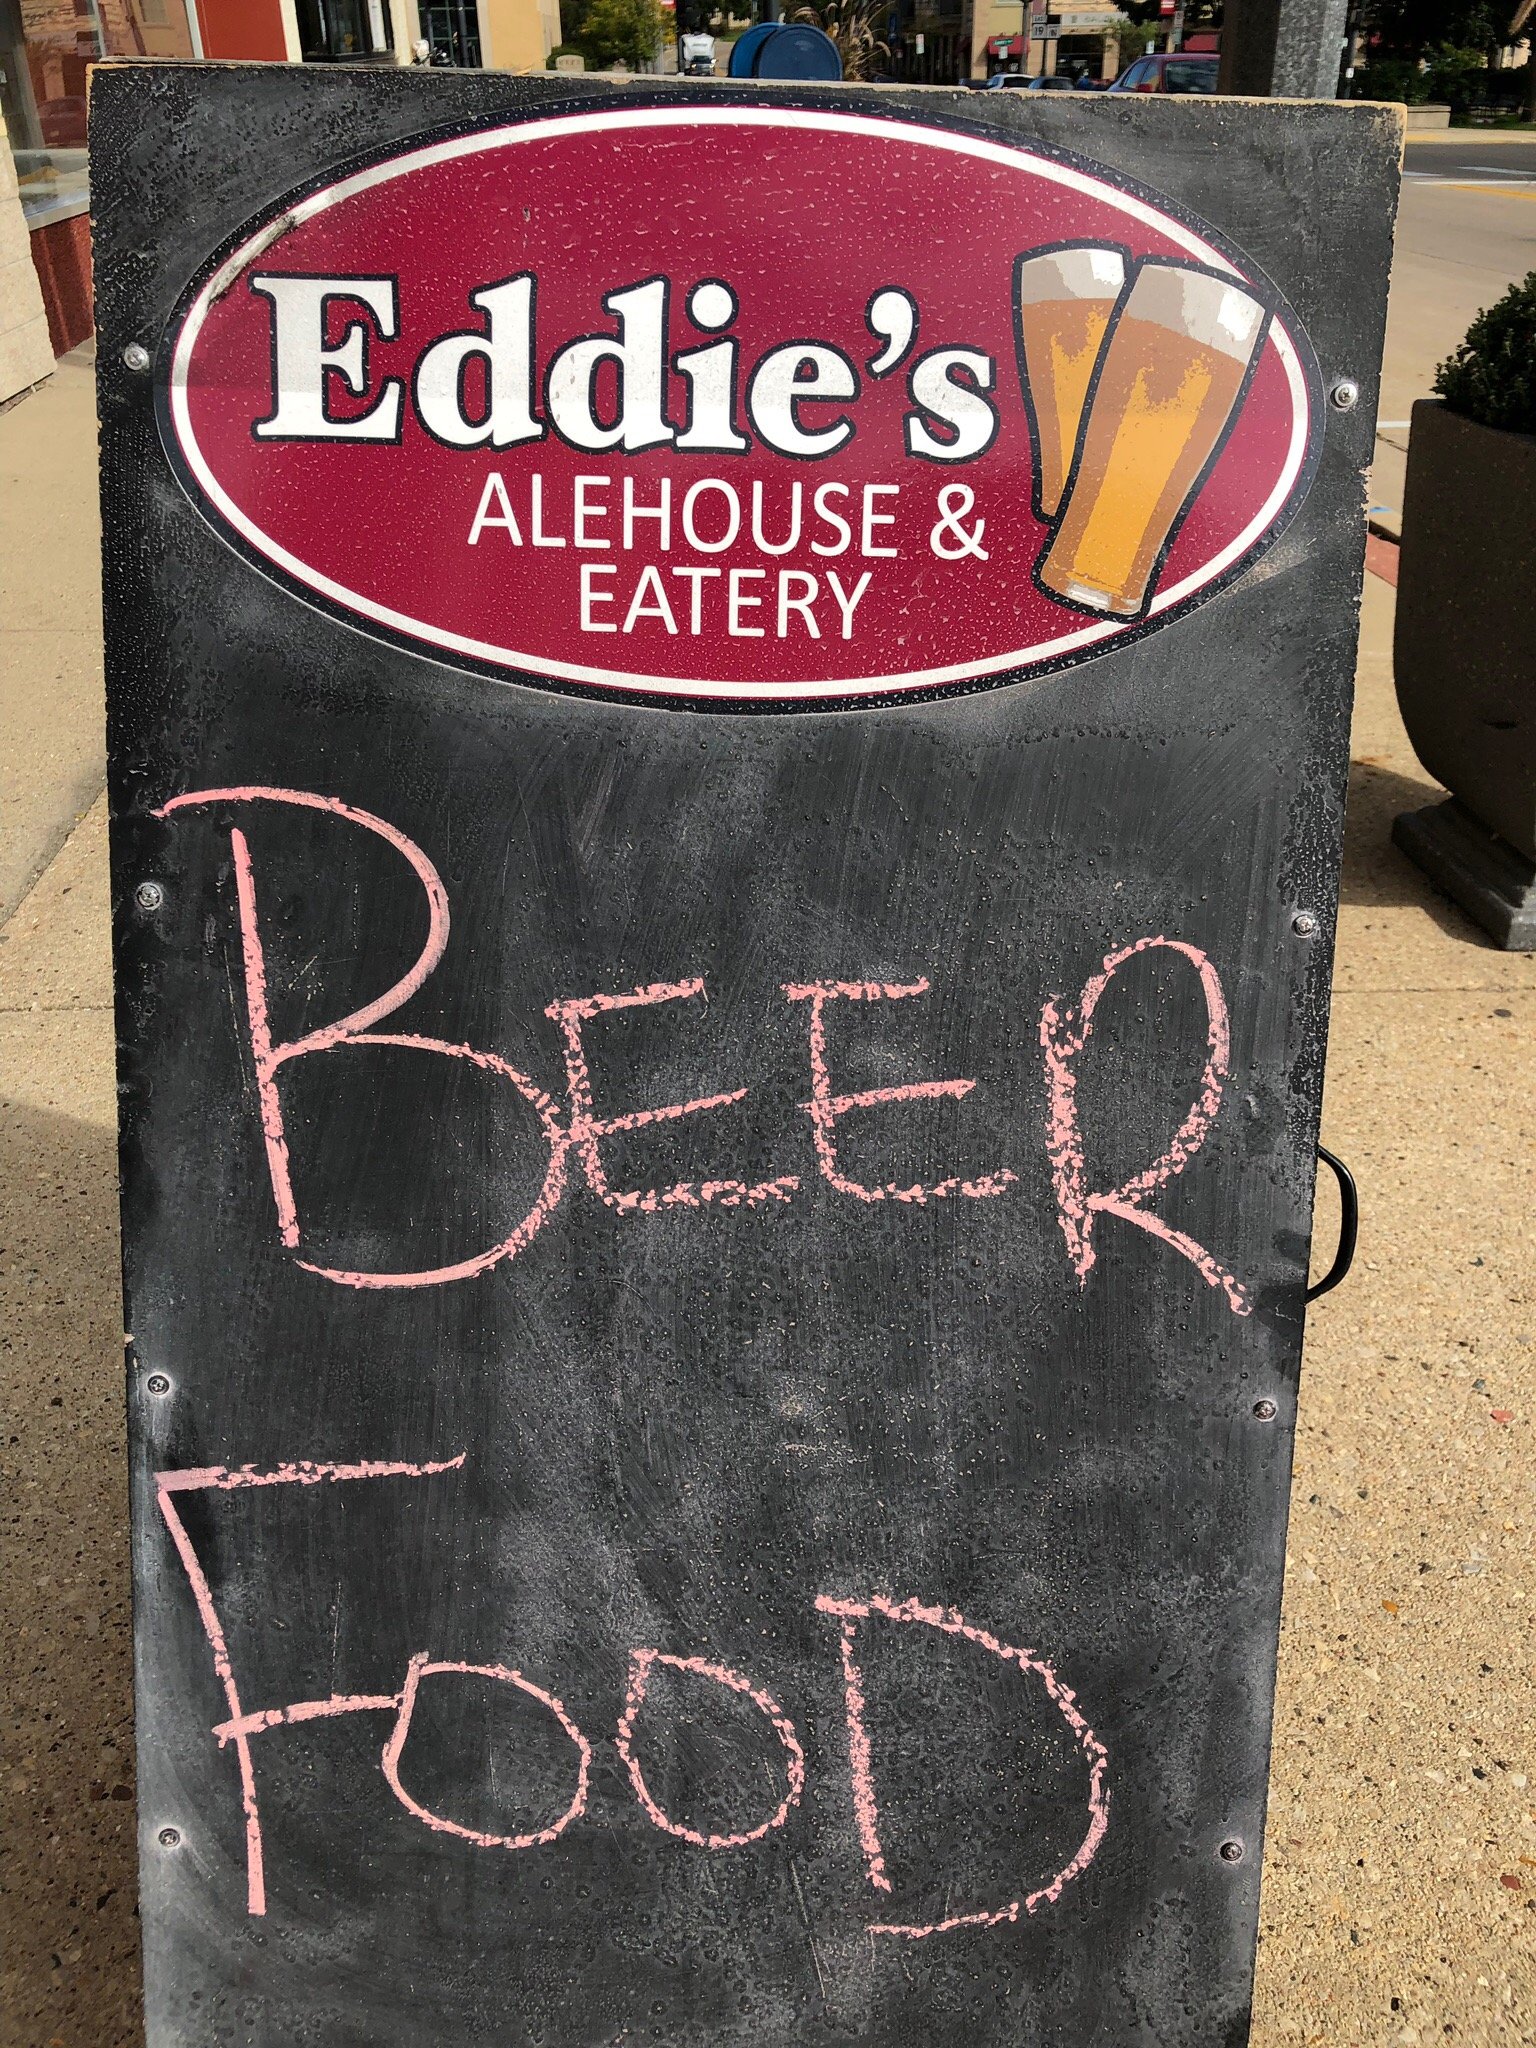 Eddie's
ALEHOUSE &
EATERY
BEER
FOOD